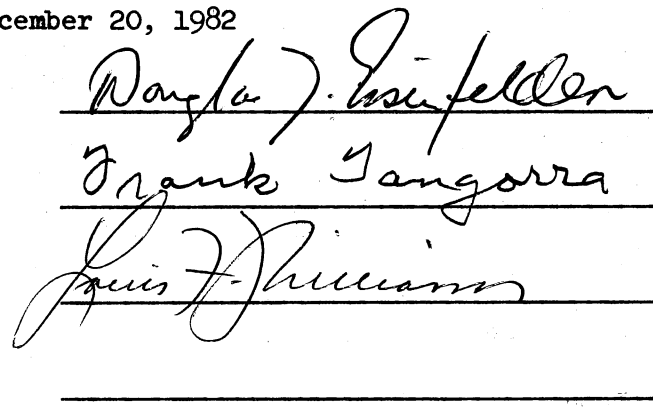 cember 20, 1982
Douglas J.
Frank Tangorra
Louis F. Williams